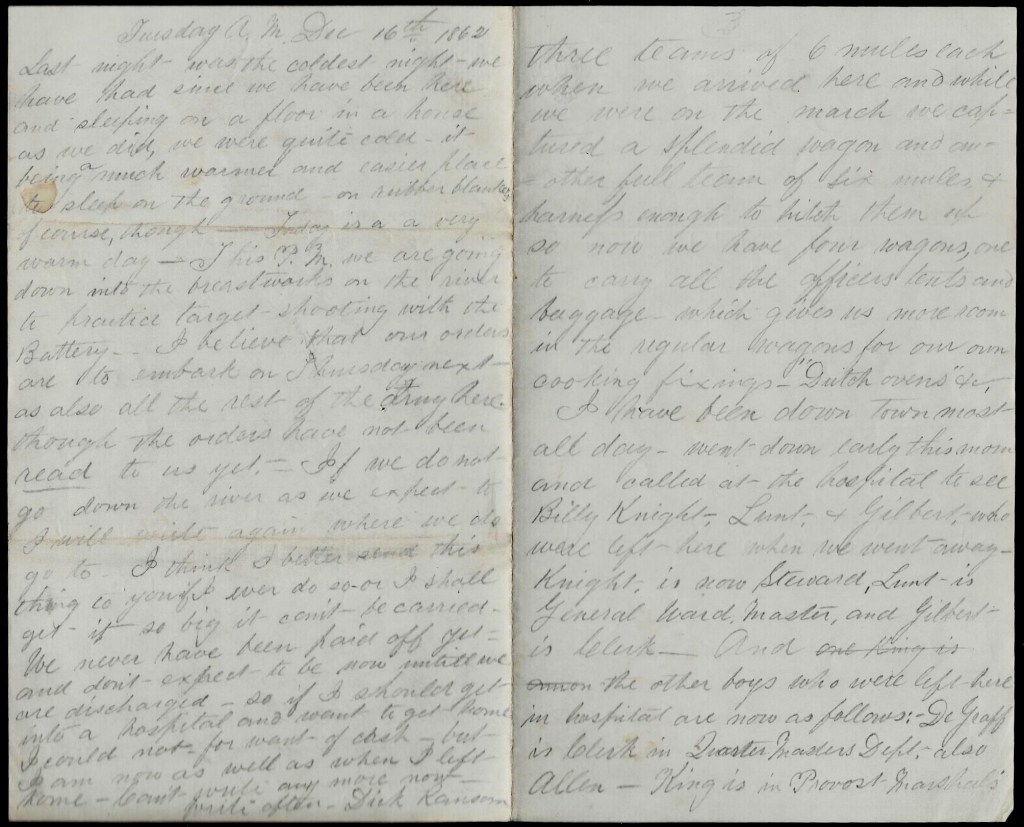 Tuesday A.M. Dec 16th 1862
Last night was the coldest night we
have had since we have been here
and sleeping on a floor in a house
as we did, we were quite cold - it
being a much warmer and easier place
to sleep on the ground - on rubber blankets
of course, though — Today is a a very
warm day — This P.M. we are going
down into the breastworks on the river
to practice target-shooting with the
Battery - I believe that our orders
are to embark on Thursday next -
as also all the rest of the Army here
though the orders have not been
read to us yet. — If we do not
go down the river as we expect to
I will write again where we do
go to - I think I better send this
thing to you if I ever do so - or I shall
get it so big it cant be carried -
We never have been paid off yet -
and don't expect to be now untill we
are discharged - so if I should get
into a hospital and want to get home
I could not for want of cash - but
I am now as well as when I left
home - Cant write any more now -
write often - Dick Ransom
3
three teams of 6 mules each
when we arrived here and while
we were on the march we cap=
tured a splendid wagon and an-
= other full team of six mules &
harness enough to hitch them up
so now we have four wagons, one
to carry all the officers tents and
baggage - which gives us more room
in the regular wagons for our own
cooking fixings - "Dutch ovens" &c,
I have been down town most
all day - went down early this morn
and called at the hospital to see
Billy Knight, Lunt, & Gilbert, who
were left here when we went away -
Knight, is now Steward, Lunt is
General Ward, Master, and Gilbert
is Clerk — And one King is
the other boys who were left here
in hospital are now as follows:- De Graff
is Clerk in Quarter Masters Dept. - also
Allen — King is in Provost Marshal's